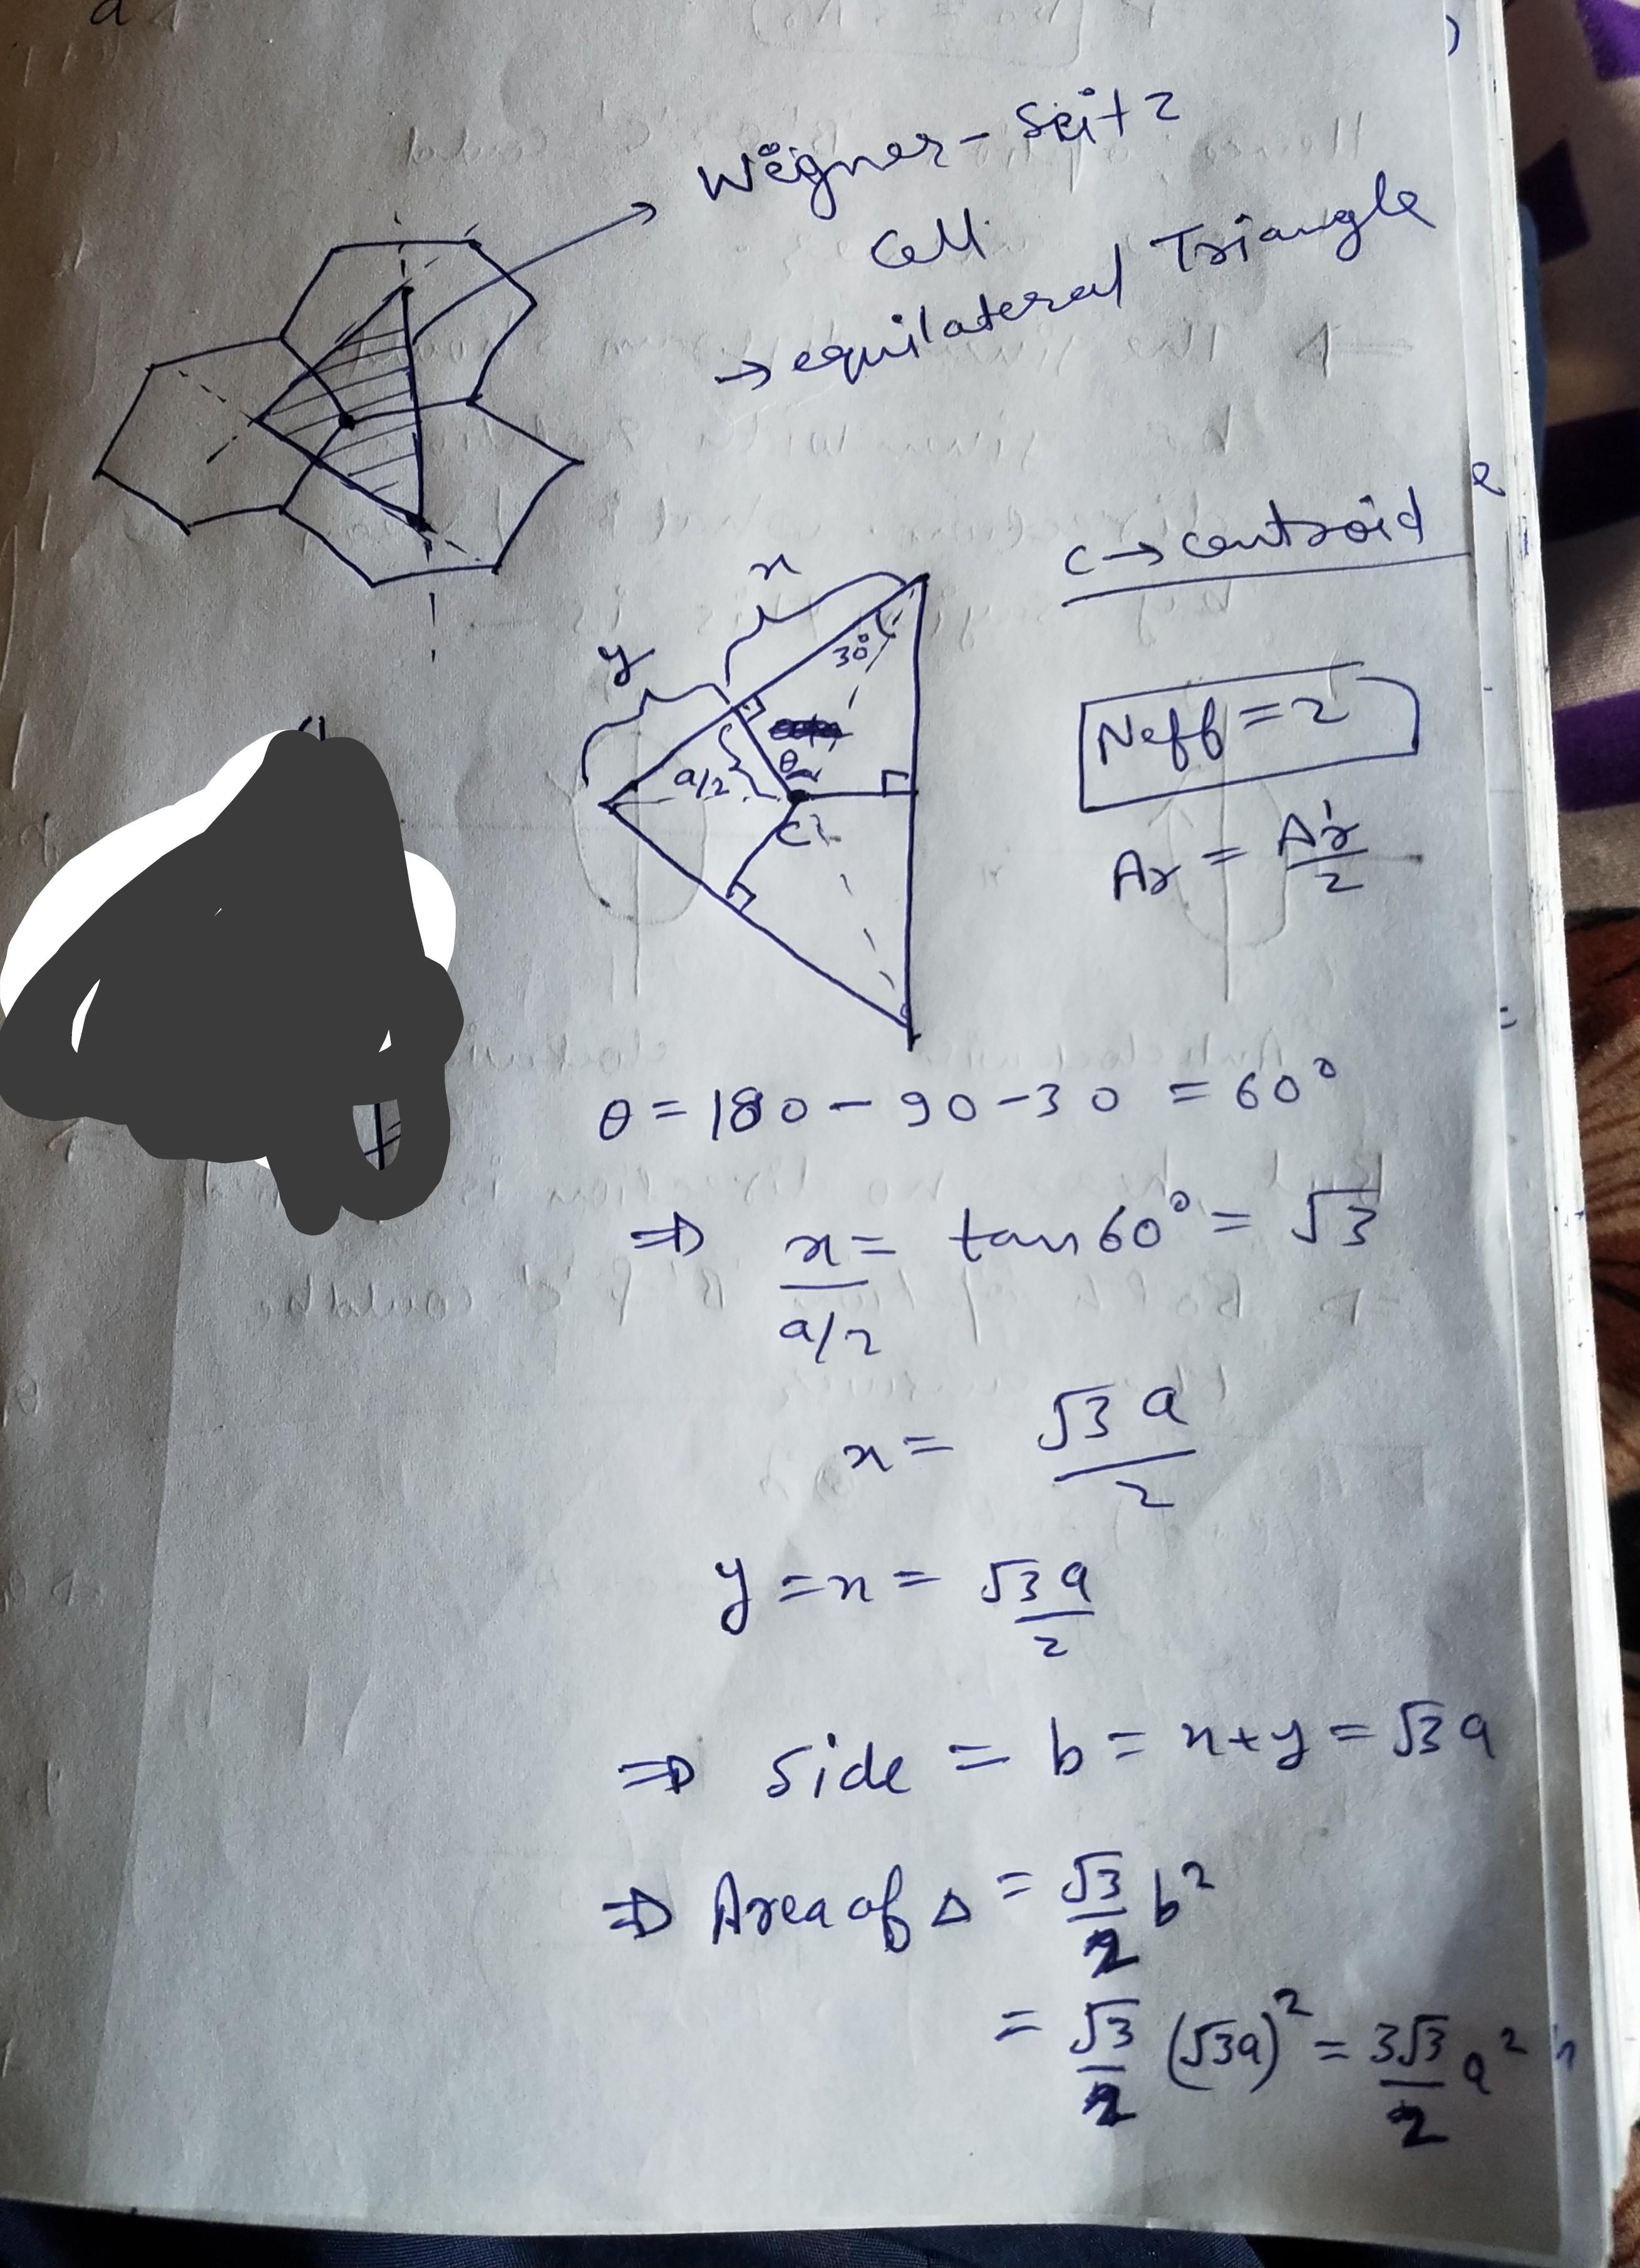 d
Wëgner - Seitz
Cell
→ equilateral Triangle
c → centroid
x
y
30°
a/2
θ
C
Neff = 2
Ar = Ar'/2
θ = 180 - 90 - 30 = 60°
⇒ x/(a/2) = tan 60° = √3
x = √3 a/2
y = x = √3a/2
⇒ side = b = x + y = √3 a
⇒ Area of Δ = √3/2 b²
= √3/2 (√3a)² = 3√3/2 a²